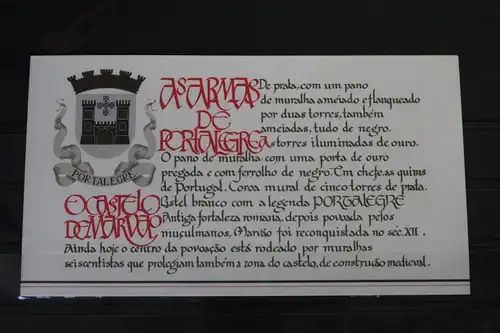 AS ARMAS
DE
PORTALEGRE
De prata, com um pano
de muralha ameiado e flanqueado
por duas torres, também
ameiadas, tudo de negro.
as torres iluminadas de ouro.
O pano de muralha com uma porta de ouro
pregada e com ferrolho de negro. Em chefe, as quinas
de Portugal. Coroa mural de cinco torres de prata.
Listel branco com a legenda PORTALEGRE
PORTALEGRE
O CASTELO
DE MARVÃO
Antiga fortaleza romana, depois povoada pelos
muçulmanos, Marvão foi reconquistada no séc. XII.
Ainda hoje o centro da povoação está rodeado por muralhas
seiscentistas que protegiam também a zona do castelo, de construção medieval.